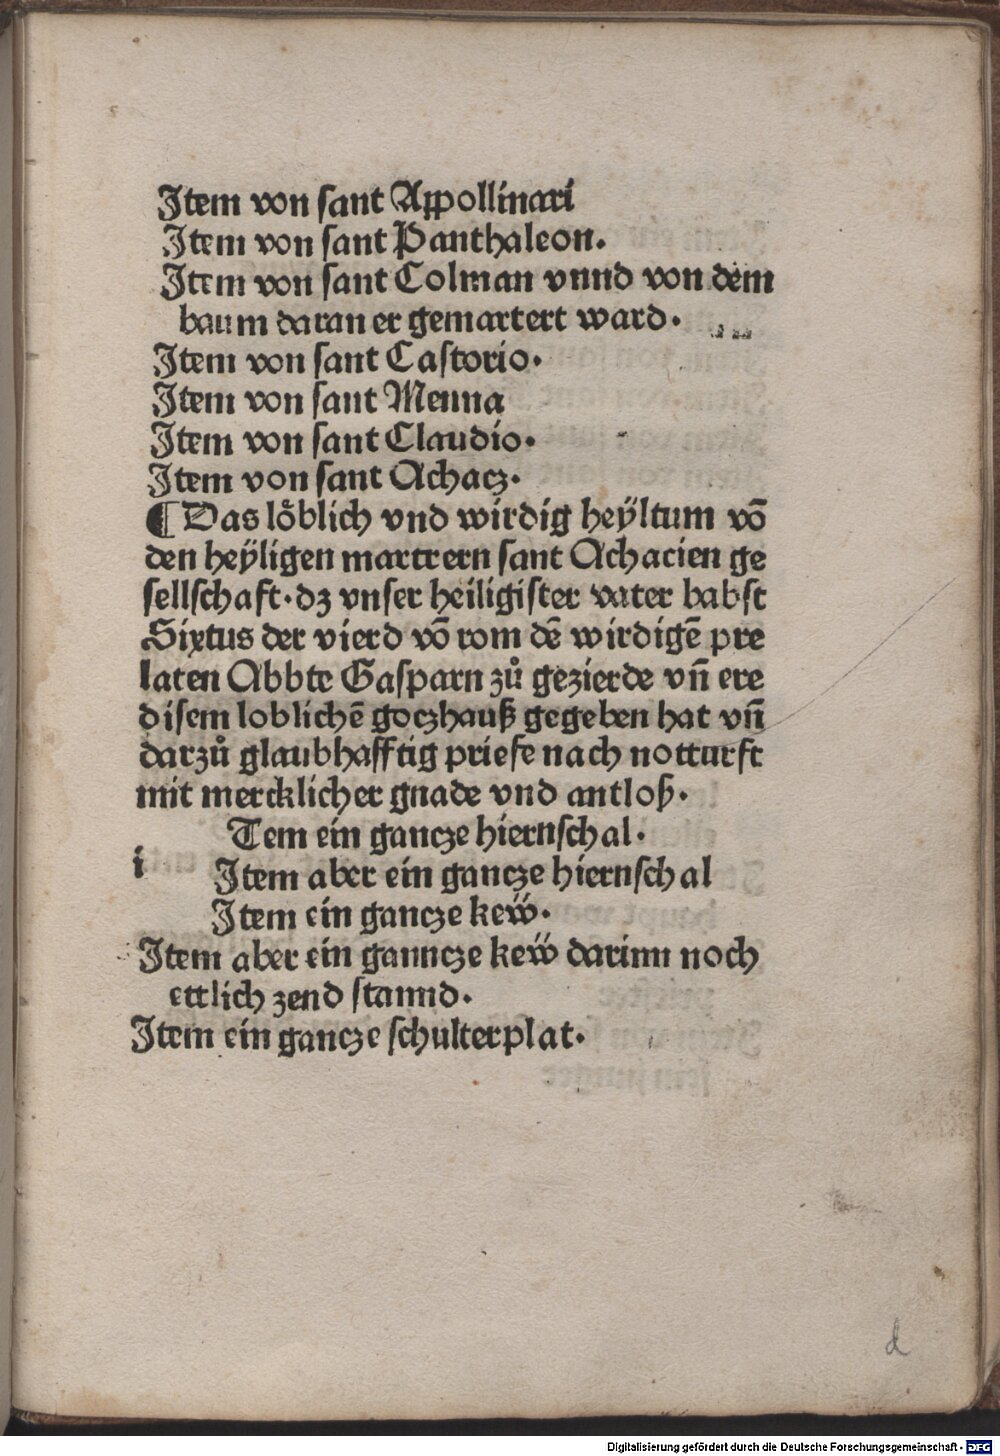 Item von sant Appollinari
Item von sant Panthaleon.
Item von sant Colman vnnd von dem
baum daran er gemartert ward.
Item von sant Castorio.
Item von sant Menna
Item von sant Claudio.
Item von sant Achacz.
¶ Das loͤblich vnd wirdig heÿltum võ
den heÿligen martrern sant Achacien ge
sellschaft. dz vnser heiligister vater babst
Sixtus der vierd võ rom dẽ wirdigẽ pre
laten Abbte Gasparn zů gezierde vñ ere
disem loblichẽ goczhauß gegeben hat vñ
darzů glaubhafftig priefe nach notturft
mit mercklicher gnade vnd antloß.
Tem ein gancze hiernschal.
i
Item aber ein gancze hiernschal
Item ein gancze keẅ.
Item aber ein ganncze keẅ darinn noch
ettlich zend stannd.
Item ein gancze schulterplat.
d
Digitalisierung gefördert durch die Deutsche Forschungsgemeinschaft - DFG